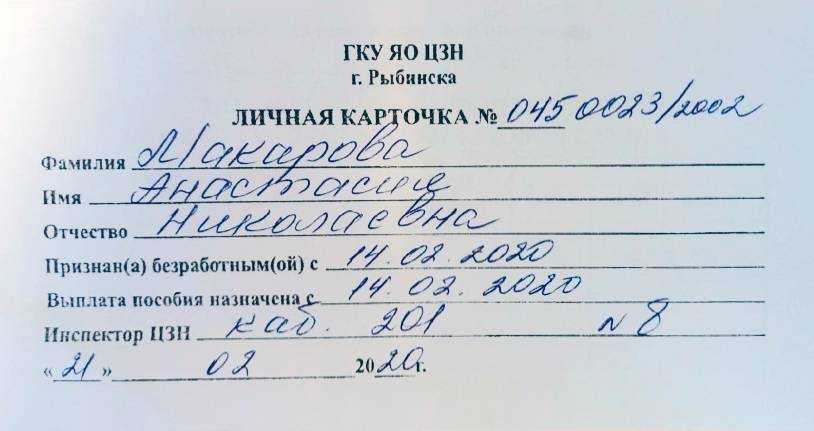 ГКУ ЯО ЦЗН
г. Рыбинска
ЛИЧНАЯ КАРТОЧКА № 0450023/2002
Фамилия Макарова
Имя Анастасия
Отчество Николаевна
Признан(а) безработным(ой) с 14.02.2020
Выплата пособия назначена с 14.02.2020
Инспектор ЦЗН каб. 201 № 8
«21» 02 2020г.